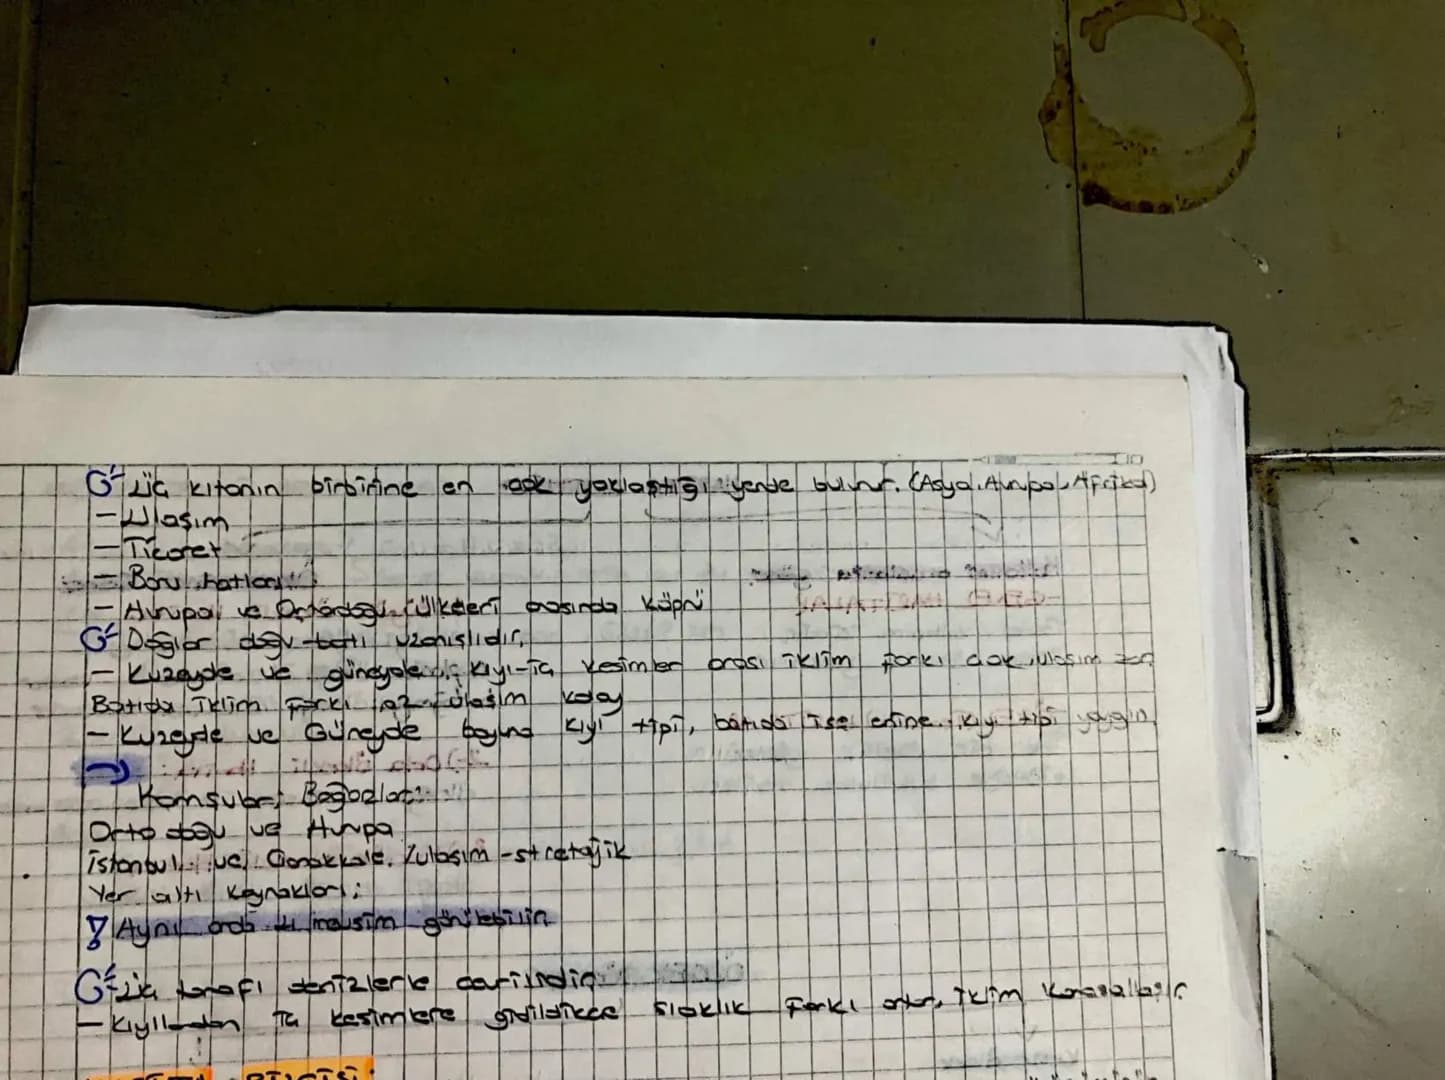 Üç kıtanın birbirine en çok yaklaştığı yerde bulunur. (Asya, Avrupa, Afrika)
- Ulaşım
- Ticaret
- Boru hatları
- Avrupa ve Ortadoğu ülkeleri arasında köprü
Dağlar doğu-batı uzanışlıdır.
- Kuzeyde ve güneyde kıyı-iç kesimler arası iklim farkı çok, ulaşım zor
Batıda iklim farkı az, ulaşım kolay
- Kuzeyde ve Güneyde boyuna kıyı tipi, batıda ise enine kıyı tipi yaygın
Komşuları; Boğazlar:
Orta doğu ve Avrupa
İstanbul ve Çanakkale. ulaşım - stratejik
Yer altı kaynakları:
Aynı anda mevsim görülebilir
Üç tarafı denizlerle çevrilidir.
- Kıyılardan iç kesimlere gidildikçe sıcaklık farkı artar, iklim karasallaşır
BİLGİSİ: